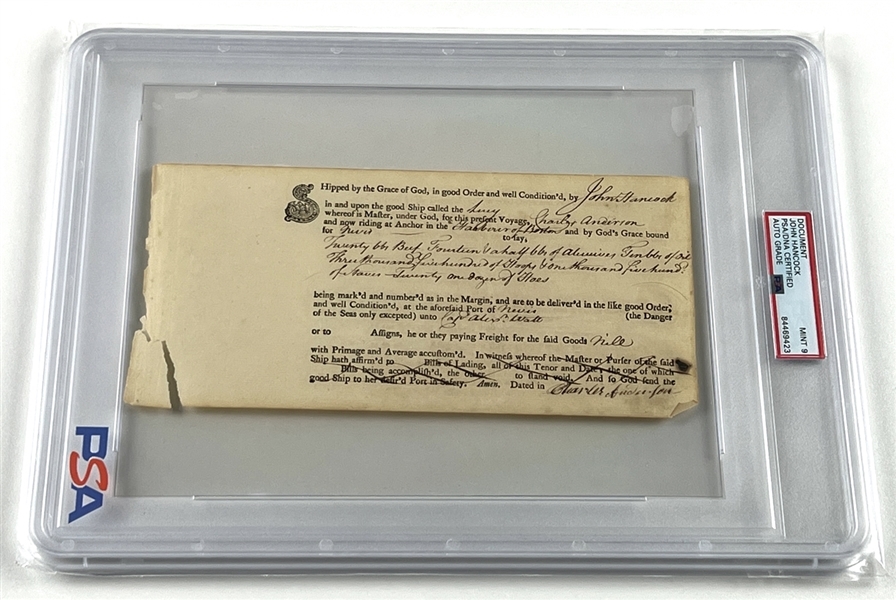 SHipped by the Grace of God, in good Order and well Condition'd, by John Hancock
in and upon the good Ship called the Lucy
whereis is Master, under God, for this present Voyage, Charles Anderson
and now riding at Anchor in the Harbour of Boston and by God's Grace bound
for Nevis to say,
Twenty bbs Beef Fourteen & a half bbs of Alewives Ten bbs of Oil
Three thousand five hundred of Hoops & one thousand five hund
of Staves Twenty one dozen of Hoes
being mark'd and number'd as in the Margin, and are to be deliver'd in the like good Order,
and well Condition'd, at the aforesaid Port of Nevis (the Danger
of the Seas only excepted) unto Cap Alexr Watt
or to Assigns, he or they paying Freight for the said Goods Nill
with Primage and Average accustom'd. In witness whereof the Master or Purser of the said
Ship hath affirm'd to Bills of Lading, all of this Tenor and Date; the one of which
Bills being accomplish'd, the other to stand void. And so God send the
good Ship to her desir'd Port in Safety. Amen. Dated in
Charles Anderson
DOCUMENT
JOHN HANCOCK
PSA/DNA CERTIFIED
AUTO GRADE
MINT 9
84469423
PSA
PSA